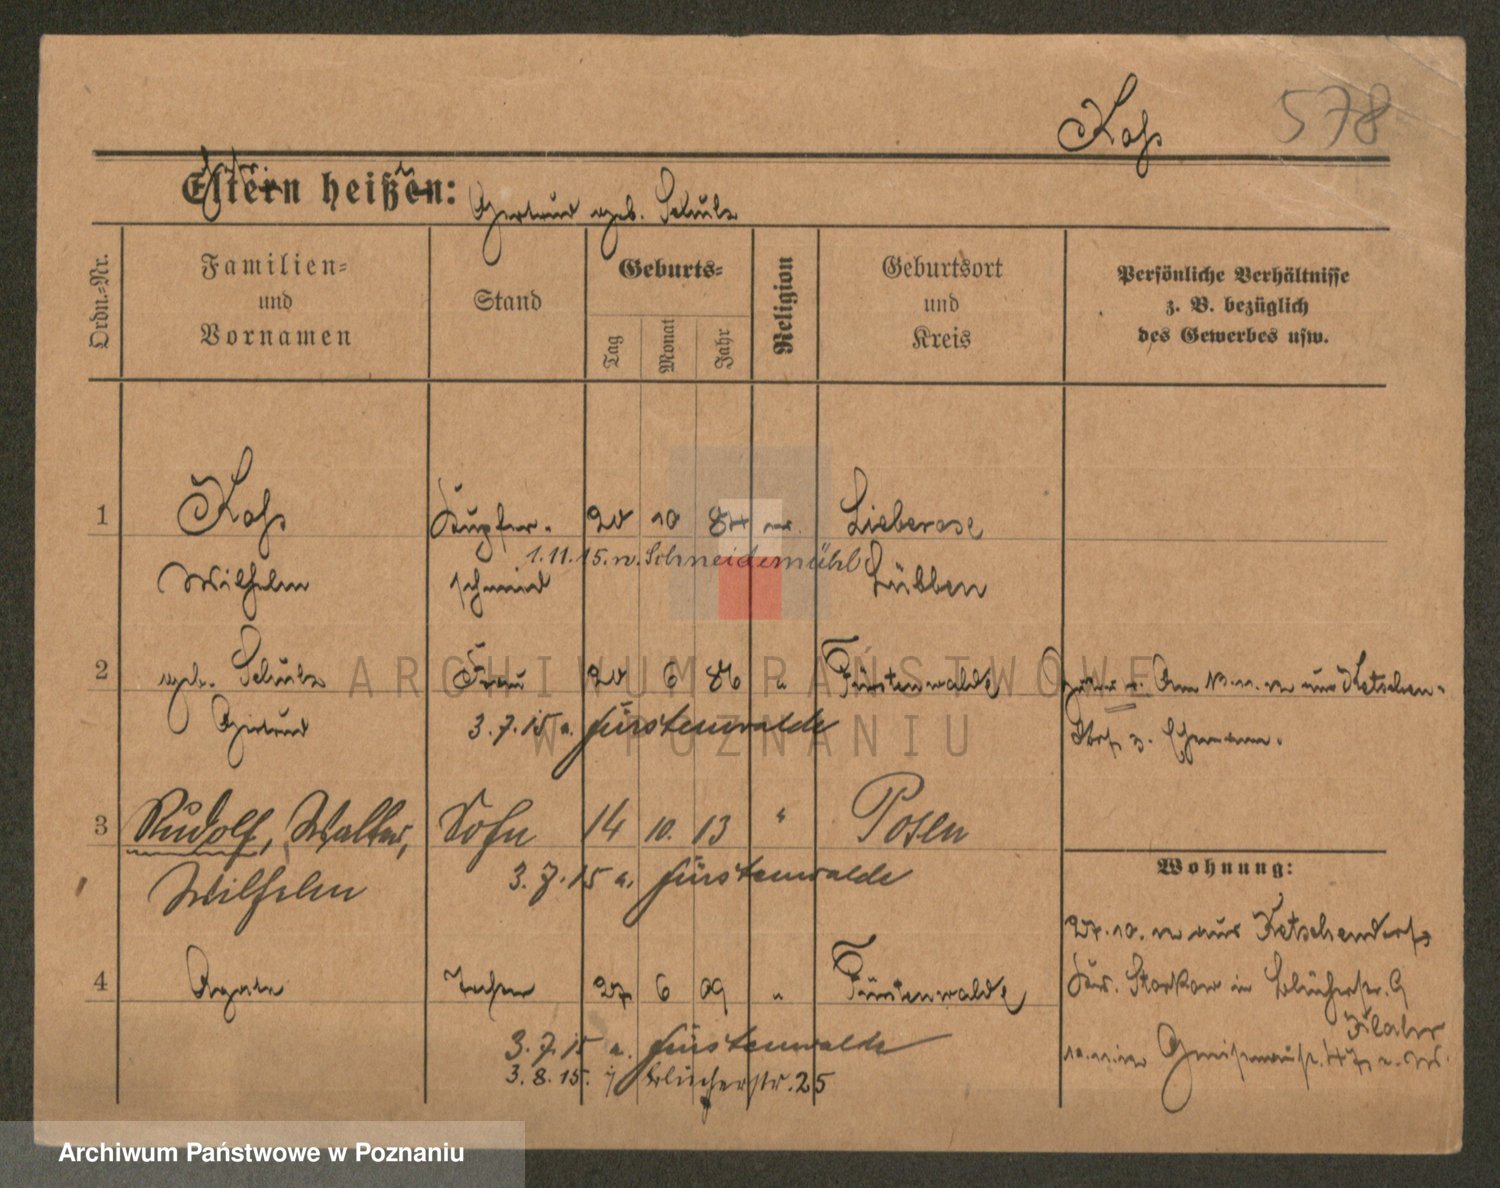 Koß 578
Eltern heißen:
Gertrud geb. Schulz
Ordn.-Nr.
Familien-
und
Vornamen
Stand
Geburts-
Tag
Monat
Jahr
Religion
Geburtsort
und
Kreis
Persönliche Verhältnisse
z. B. bezüglich
des Gewerbes usw.
1 Koß Kupfer- 20 10 84 ev. Lieberose
1.11.15. n. Schneidemühl
Wilhelm schmied Lübben
2 geb. Schulz Frau 20 6 86 " Fürstenwalde
Gertrud 3.7.15 a. Fürstenwalde
z. Ehemann.
3 Rudolf, Walter, Sohn 14 10. 13 " Posen
Wilhelm 3.7.15 a. Fürstenwalde
Wohnung:
27.10. aus Ketschendorf
4 Tochter 27 6 09 " Fürstenwalde
Storkow in Blücherstr. 9
3.7.15 a. Fürstenwalde
3.8.15. Blücherstr. 25
ARCHIWUM PAŃSTWOWE
W POZNANIU
Archiwum Państwowe w Poznaniu